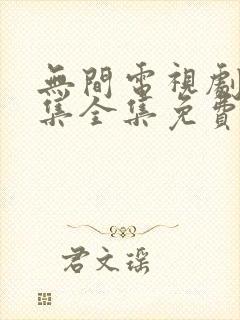 無間電視劇
集全集免費
君文瑤